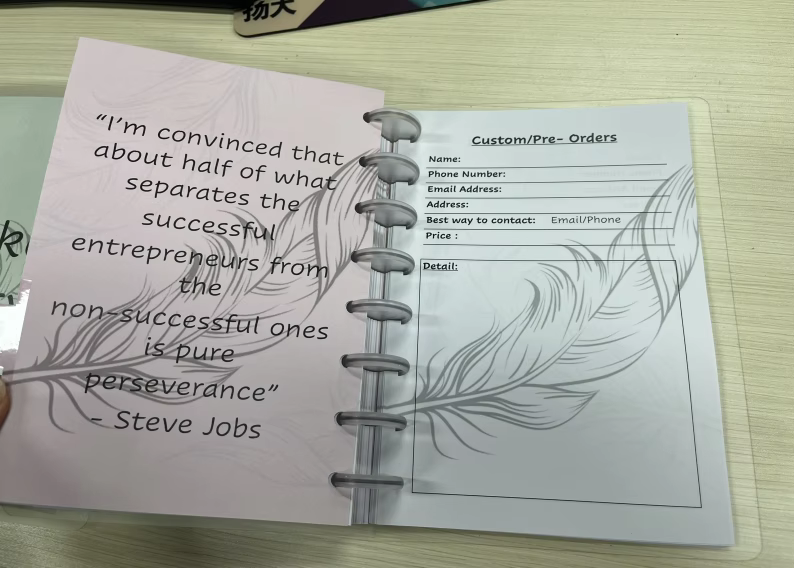 扬天
"I'm convinced that
about half of what
separates the
successful
entrepreneurs from
the
non-successful ones
is pure
perseverance"
- Steve Jobs
Custom/Pre- Orders
Name:
Phone Number:
Email Address:
Address:
Best way to contact: Email/Phone
Price :
Detail: